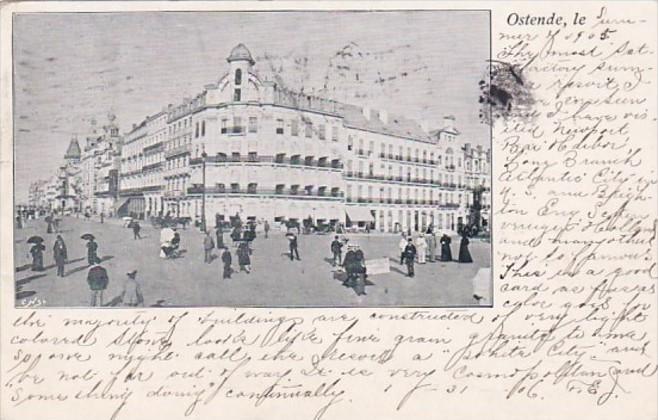 Ostende, le Sum-
mer of 1905
The most Sat-
isfactory sum-
resort I
ever seen
I have vis-
ited Newport
Bar Harbor
Long Branch
Atlantic City in
U. S. and Brigh-
ton Eng Scheven
Holland
and many other
not so famous
This is a good
card as far as
color goes for
the majority of buildings are constructed of very light
colored stone looks like fine grain granite to me
so one might call the resort a "white City" and
be not far out of way It is very Cosmopolitan and
"Something doing" continually. 1 of 31 06. F.E.J.